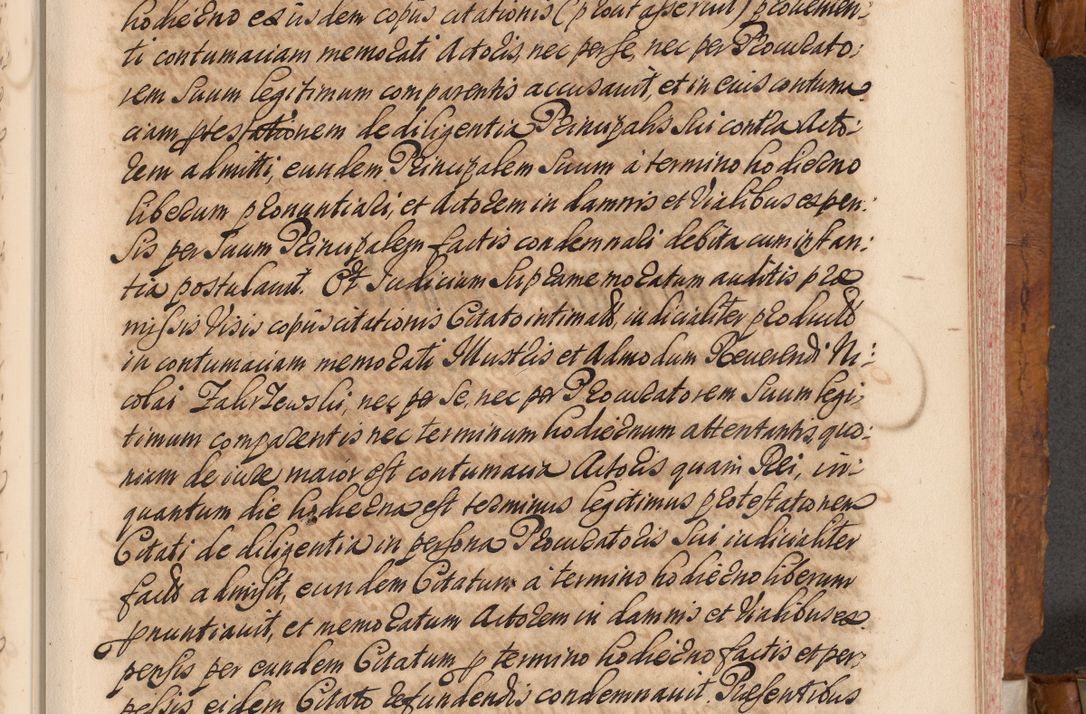 hodierno ex iisdem copiis citationis (prout asseruit) provenien:
ti contumaciam memorati Actoris, nec per se, nec per Procurato:
rem Suum legitimum comparentis accusavit, et in eius contuma:
ciam ptestationem de diligentia Principalis Sui contra Acto:
rem admitti, eundem Principalem Suum à termino hodierno
liberum pronuntiari, et Actorem in damnis et Vialibus expen:
sis per Suum Principalem factis condemnari debita cum instan:
tia postulavit. Et Judicium Supramemoratum auditis præ
missis Visis copiis citationis Citato intimatis, iudicialiter productis
in contumaciam memorati Illustris et Admodum Reverendi Ni:
colai Zakrzewski, nec per Se, nec per Procuratorem Suum legi:
timum comparentis nec terminum hodiernum attentantis, quo:
niam de iure maior est contumacia Actoris quam Rei, in:
quantum die hodierna est terminus legitimus protestationem
Citati de diligentia in persona Procuratoris Sui iudicialiter
factis admisit, eundem Citatum à termino hodierno liberum
pnuntiavit, et memoratum Actorem in damnis et Vialibus ex:
pensis per eundem Citatum p termino hodierno factis et per:
pessis eidem Citato refundendis condemnavit. Præsentibus